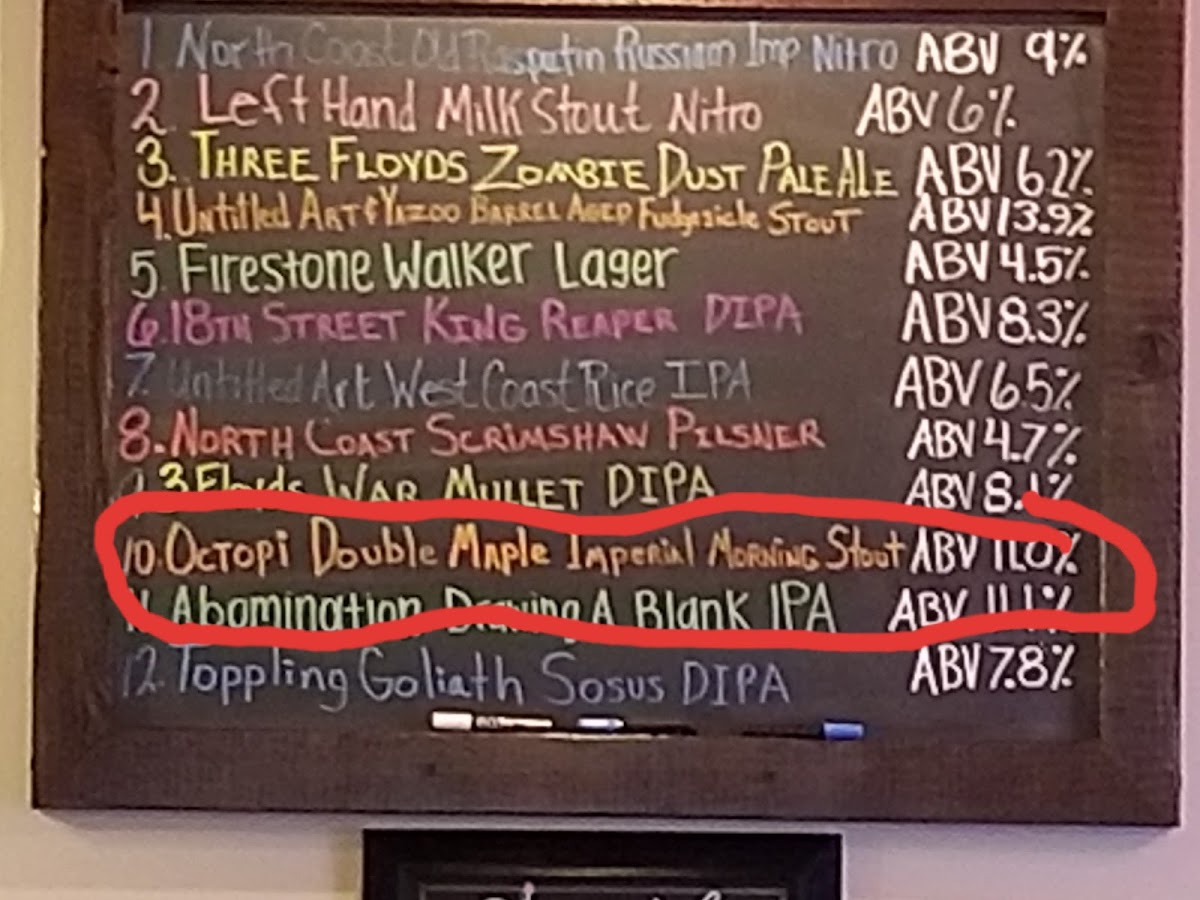 1. North Coast Old Raspatin Russian Imp Nitro ABV 9%
2. Left Hand Milk Stout Nitro ABV 6%
3. THREE FLOYDS ZOMBIE DUST PALE ALE ABV 6.2%
4. Untitled ART & YAZOO BARREL AGED Fudgesicle STOUT ABV 13.9%
5. Firestone Walker Lager ABV 4.5%
6. 18TH STREET KING REAPER DIPA ABV 8.3%
7. Untitled Art West Coast Rice IPA ABV 6.5%
8. NORTH COAST SCRIMSHAW PILSNER ABV 4.7%
9. 3 Floyds WAR MULLET DIPA ABV 8.1%
10. Octopi Double Maple Imperial MORNING Stout ABV 11.0%
11. Abomination Drawing A Blank IPA ABV 11.1%
12. Toppling Goliath Sosus DIPA ABV 7.8%